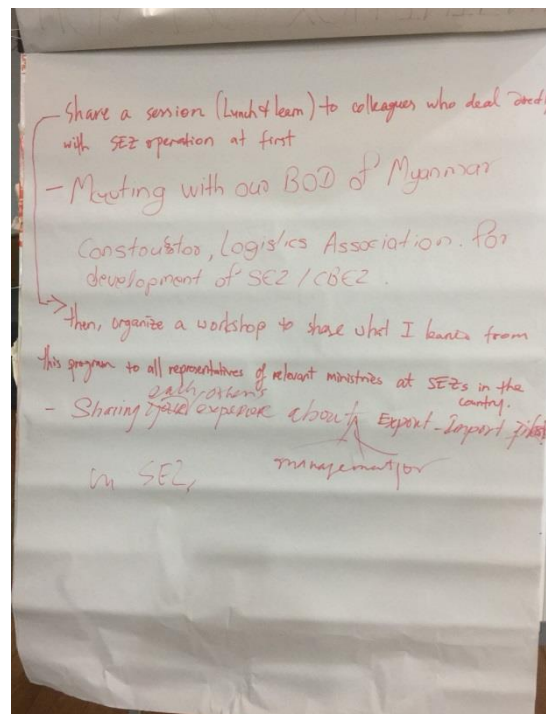 - Share a session (Lunch & learn) to colleagues who deal directly
with SEZ operation at first
- Meeting with our BOD of Myanmar
Constoustor, Logistics Association. for
development of SEZ / CBEZ.
then, organize a workshop to share what I learnt from
this program to all representatives of relevant ministries at SEZs in the
country.
each other's
- Sharing experience about Export-Import
management for
in SEZ,